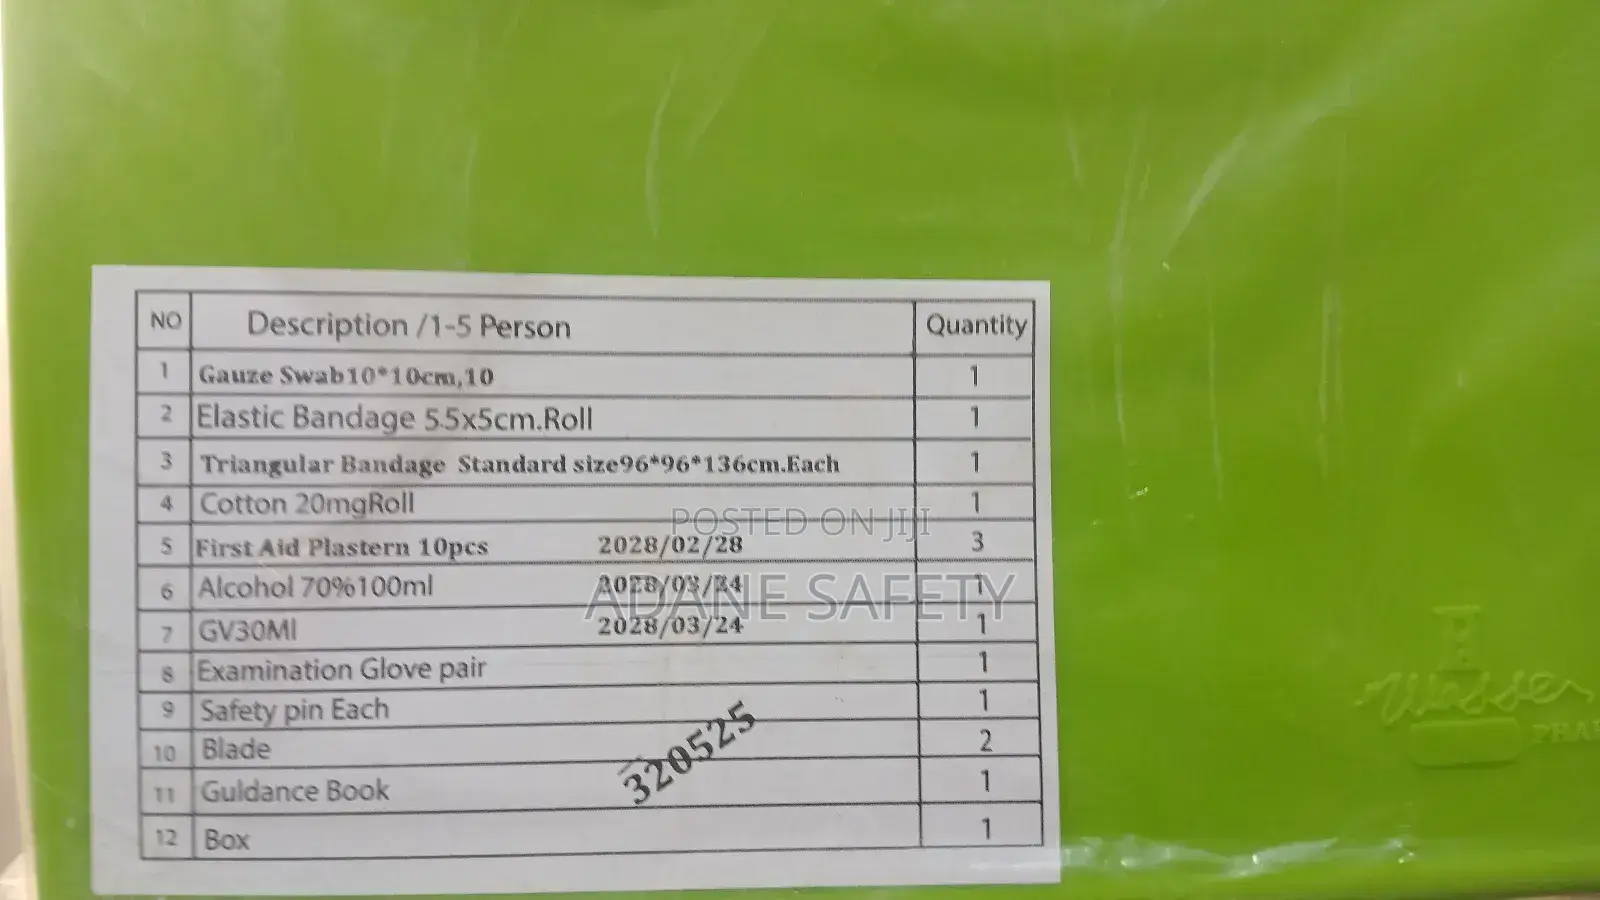 NO Description /1-5 Person Quantity
1 Gauze Swab10*10cm,10 1
2 Elastic Bandage 5.5x5cm.Roll 1
3 Triangular Bandage Standard size96*96*136cm.Each 1
4 Cotton 20mgRoll 1
POSTED ON JIJI
5 First Aid Plastern 10pcs 2028/02/28 3
6 Alcohol 70%100ml 2028/03/24 1
ADANE SAFETY
7 GV30Ml 2028/03/24 1
8 Examination Glove pair 1
9 Safety pin Each 1
10 Blade 2
320525
11 Guldance Book 1
12 Box 1